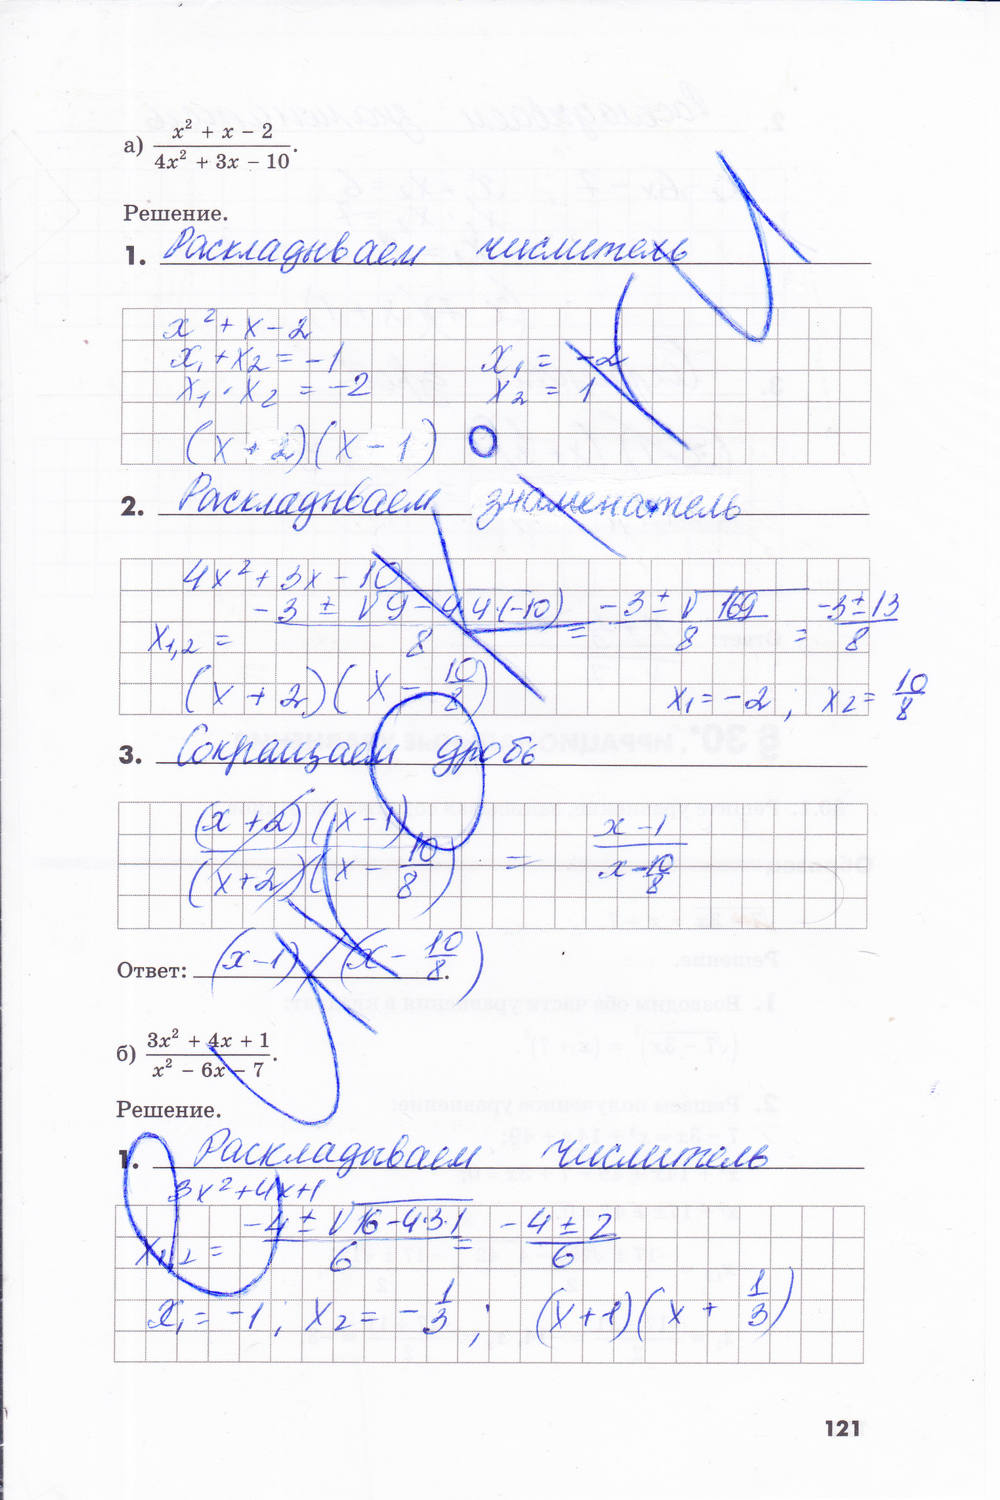 а) (x² + x − 2)/(4x² + 3x − 10).
Решение.
1. Раскладываем числитель
x² + x − 2
x₁ + x₂ = −1 x₁ = −2
x₁ · x₂ = −2 x₂ = 1
(x + 2)(x − 1)
2. Раскладываем знаменатель
4x² + 3x − 10
x₁,₂ = (−3 ± √9 − 4·4·(−10))/8 = (−3 ± √169)/8 = (−3 ± 13)/8
(x + 2)(x − 10/8) x₁ = −2 ; x₂ = 10/8
3. Сокращаем дробь
(x + 2)(x − 1)/(x + 2)(x − 10/8) = (x − 1)/(x − 10/8)
Ответ: (x − 1) / (x − 10/8).
б) (3x² + 4x + 1)/(x² − 6x − 7).
Решение.
1. Раскладываем числитель
3x² + 4x + 1
x₁,₂ = (−4 ± √16 − 4·3·1)/6 = (−4 ± 2)/6
x₁ = −1 ; x₂ = −1/3 ; (x + 1)(x + 1/3)
121